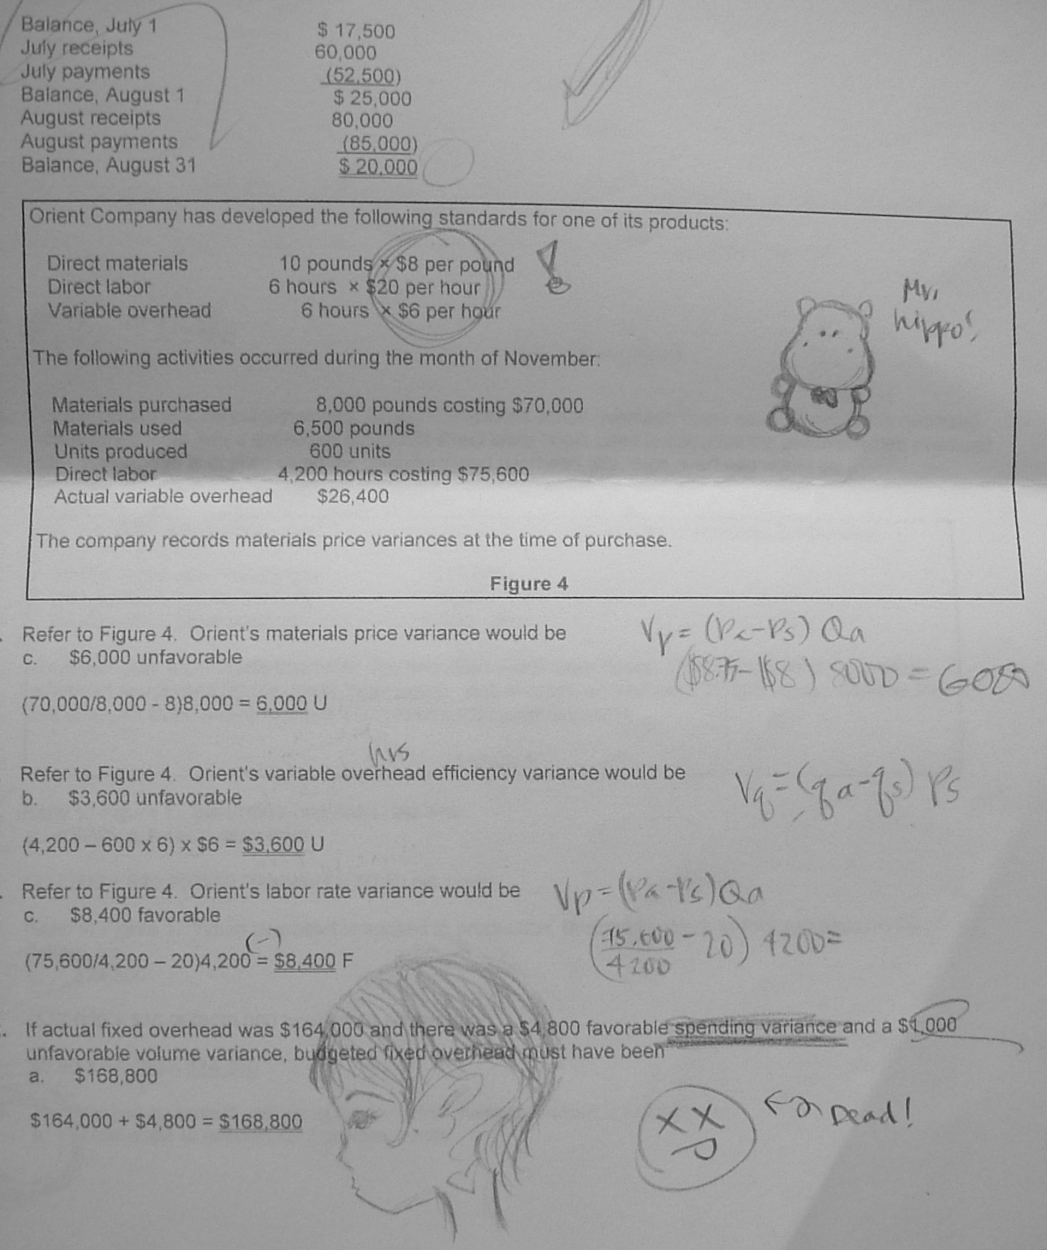 Balance, July 1 $ 17,500
July receipts 60,000
July payments (52,500)
Balance, August 1 $ 25,000
August receipts 80,000
August payments (85,000)
Balance, August 31 $ 20,000
Orient Company has developed the following standards for one of its products:
Direct materials 10 pounds × $8 per pound
Direct labor 6 hours × $20 per hour
Variable overhead 6 hours × $6 per hour
Mr.
hippo!
The following activities occurred during the month of November:
Materials purchased 8,000 pounds costing $70,000
Materials used 6,500 pounds
Units produced 600 units
Direct labor 4,200 hours costing $75,600
Actual variable overhead $26,400
The company records materials price variances at the time of purchase.
Figure 4
Refer to Figure 4. Orient's materials price variance would be
c. $6,000 unfavorable
Vp = (Pa-Ps) Qa
($8.75-$8) 8000 = 6000
(70,000/8,000 - 8)8,000 = 6,000 U
hrs
Refer to Figure 4. Orient's variable overhead efficiency variance would be
b. $3,600 unfavorable
Vq = (qa-qs) Ps
(4,200 – 600 x 6) x $6 = $3,600 U
Refer to Figure 4. Orient's labor rate variance would be
c. $8,400 favorable
Vp = (Pa-Ps)Qa
(75,600/4200 - 20) 4200 =
(-)
(75,600/4,200 – 20)4,200 = $8,400 F
If actual fixed overhead was $164,000 and there was a $4,800 favorable spending variance and a $1,000
unfavorable volume variance, budgeted fixed overhead must have been
a. $168,800
$164,000 + $4,800 = $168,800
XX
Dead!